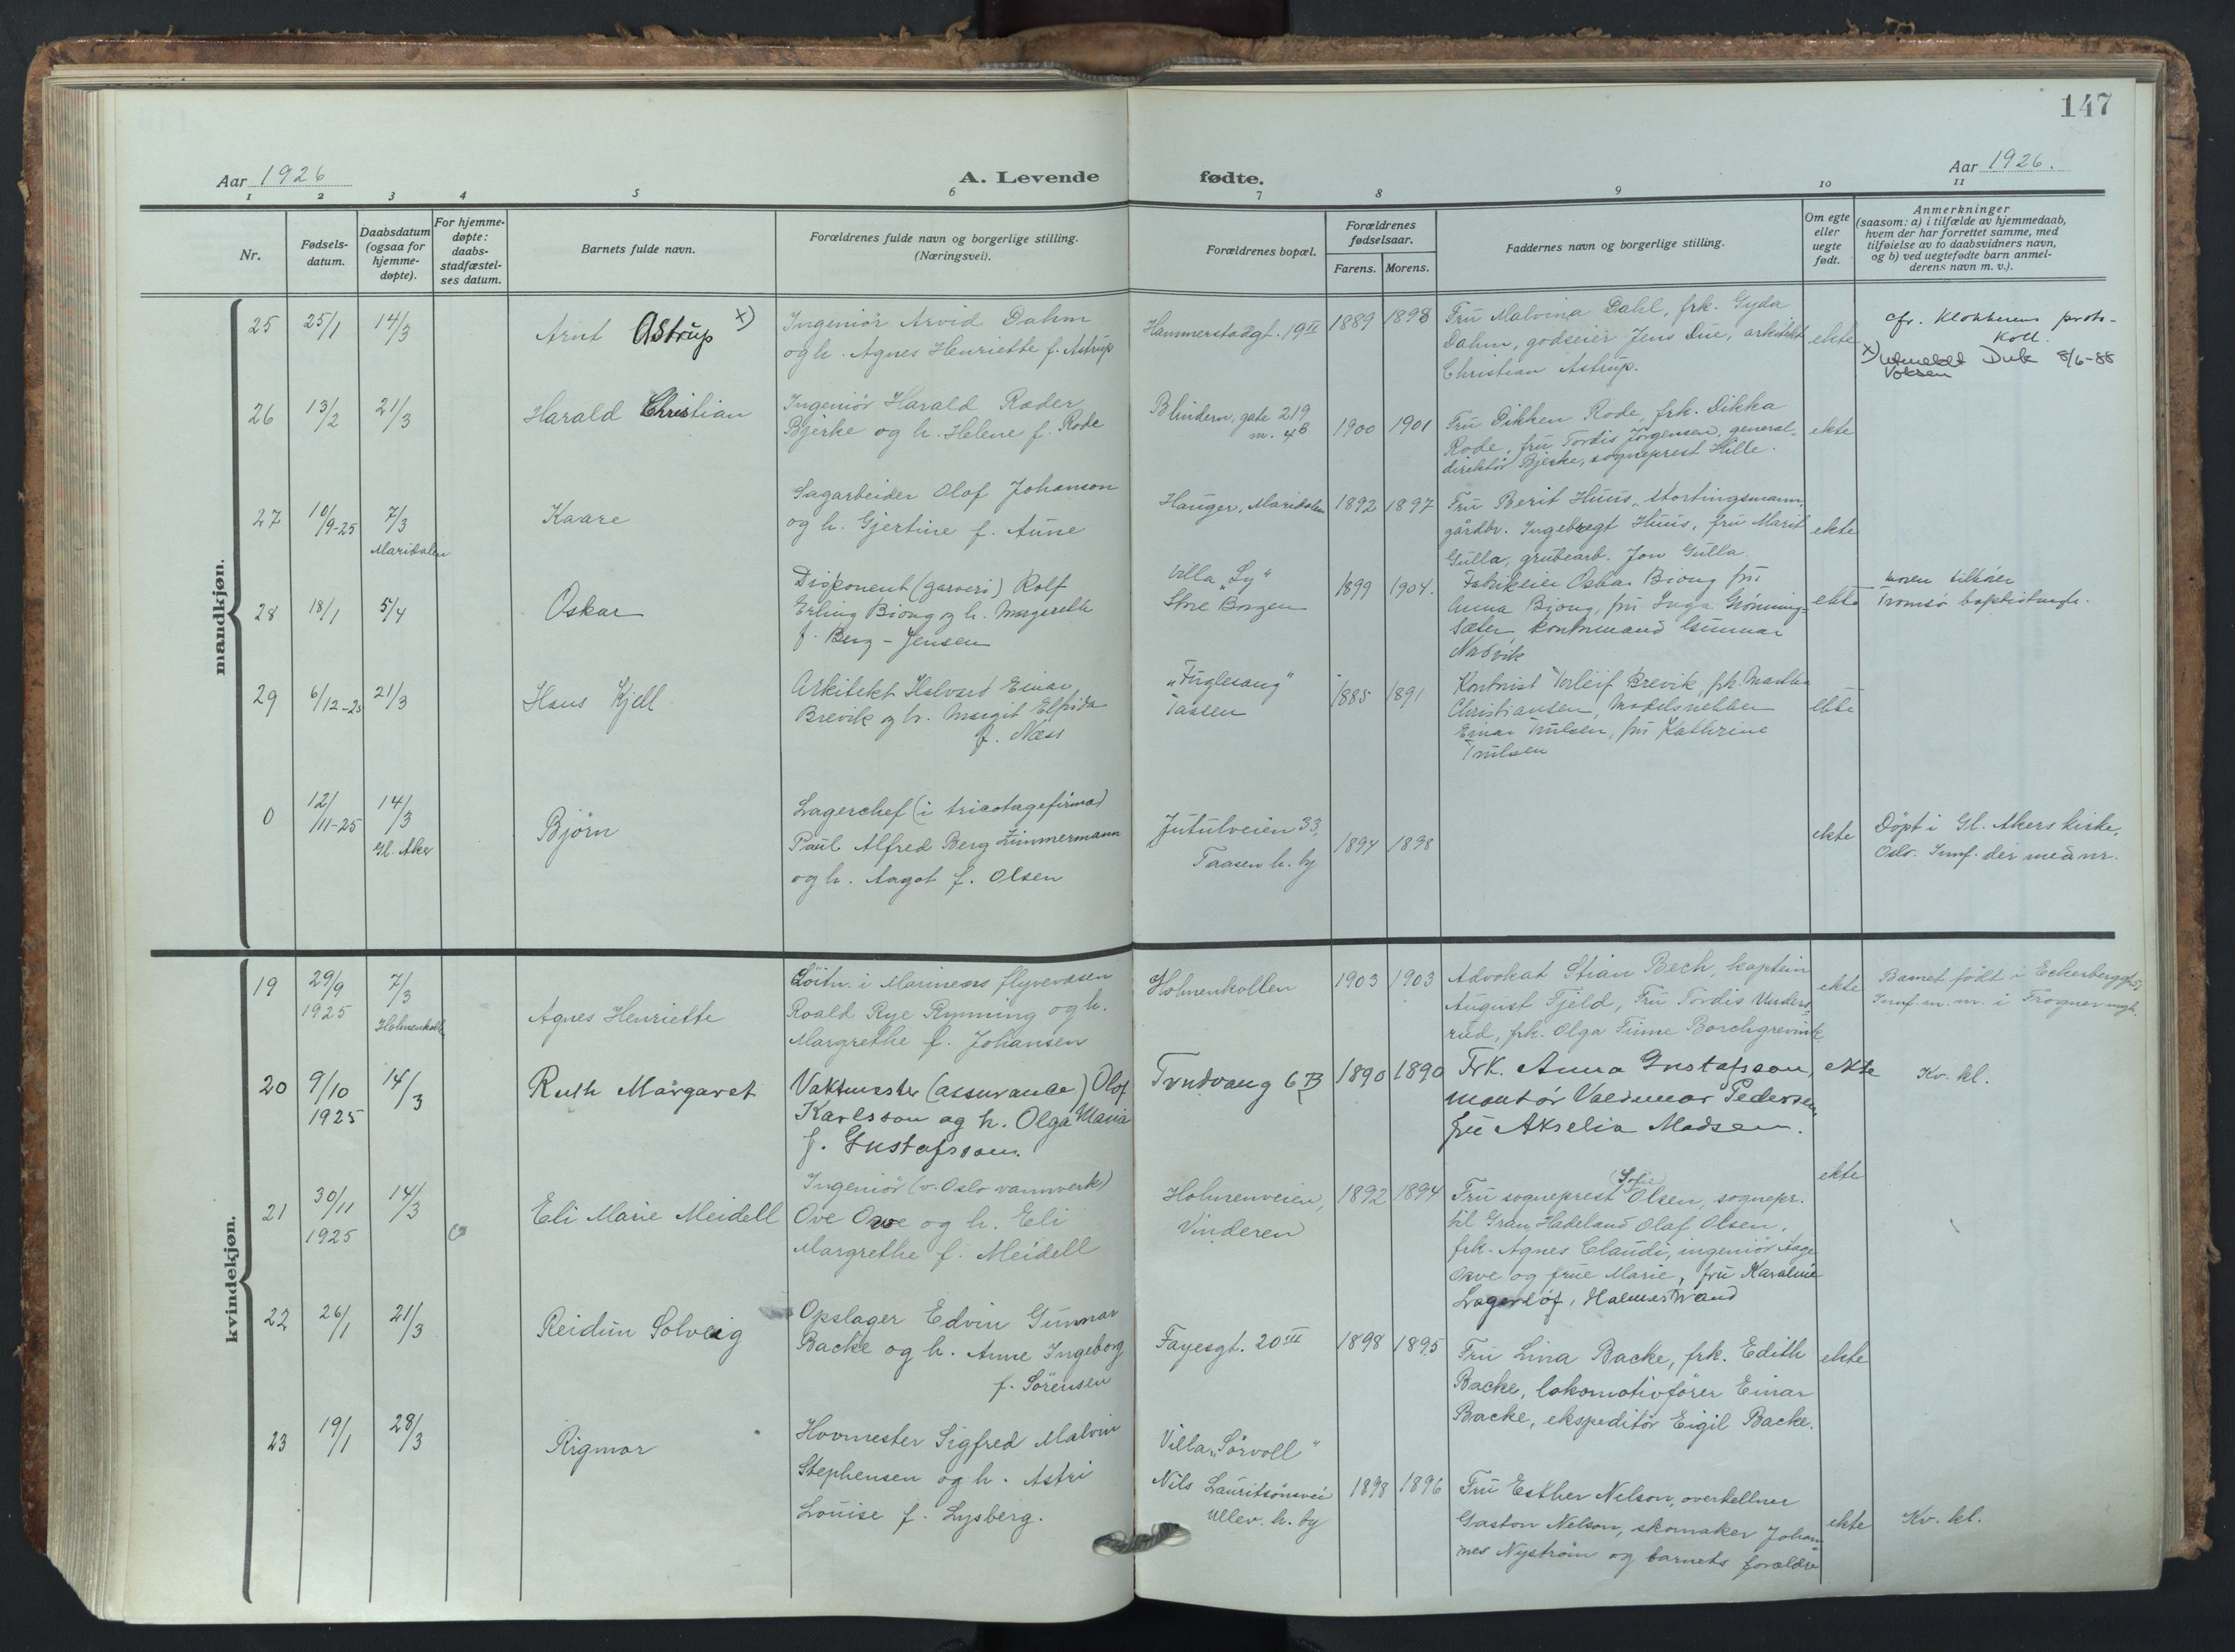 147
Aar 1926
A. Levende
fødte.
Aar 1926.
1 2 3 4 5 6 7 8 9 10 11
Nr.
Fødsels-
datum.
Daabsdatum
(ogsaa for
hjemme-
døpte).
For hjemme-
døpte:
daabs-
stadfæstel-
ses datum.
Barnets fulde navn.
Forældrenes fulde navn og borgerlige stilling.
(Næringsvei).
Forældrenes bopæl.
Forældrenes
fødselsaar.
Farens. Morens.
Faddernes navn og borgerlige stilling.
Om egte
eller
uegte
født.
Anmerkninger
(saasom: a) i tilfælde av hjemmedaab,
hvem der har forrettet samme, med
tilføielse av to daabsvidners navn,
og b) ved uegtefødte barn anmel-
derens navn m. v.).
mandkjøn.
25
25/1
14/3
Arnt Astrup x)
Ingeniör Arvid Dahm
og h. Agnes Henriette f. Astrup
Hammerstadgt. 19 II
1889 1898
Fru Malvina Dahl, frk. Gyda
Dahm, godseier Jens Due, arkitekt
Christian Astrup.
ekte
cfr. Klokkerens proto-
koll.
x) utmeldt Dnk 8/6-88
Voksen
26
13/2
21/3
Harald Christian
Ingeniör Harald Rader
Bjerke og h. Helene f. Rode
Blindern, gate 219
m. 4B
1900 1901
Fru Dikken Rode, frk. Dikka
Rode, fru Tordis Jörgensen, general-
direktör Bjerke, sogneprest Hille.
ekte
27
10/9-25
7/3
Maridalen
Kaare
Sagarbeider Olof Johanson
og h. Gjertine f. Aune
Hauger, Maridalen
1892 1897
Fru Berit Huus, stortingsmann,
gårdbr. Ingebregt Huus, fru Marit
Gulla, grubearb. Jon Gulla.
ekte
28
18/1
5/4
Oskar
Disponent (garveri) Rolf
Erling Biong og h. Margareth
f. Berg-Jensen
Villa "Ly"
Store Borgen
1899 1904.
Fabrikeier Oskar Biong fru
Anna Bjong, fru Inga Grönning-
sæter, kontormand Gunnar
Nasvik
ekte
moren tilhörer
Tromsø baptistmgh.
29
6/12-25
21/3
Hans Kjell
Arkitekt Halvard Einar
Brevik og h. Margit Elfrida
f. Næss
"Fuglesang"
Taasen
1885 1891
Kontorist Torleif Brevik, frk. Martha
Christiansen, Modelsnekker
Einar Trulsen, fru Kathrine
Trulsen
ekte
0
12/11-25
14/3
Gl. Aker
Björn
Lagerchef (i tricotagefirma)
Paul Alfred Berg Zimmermann
og h. Aagot f. Olsen
Jutulveien 33,
Taasen h. by
1894 1898
ekte
Döpt i Gl. Akers kirke,
Oslo. Innf. der med nr.
kvindekjøn.
19
29/9
1925
7/3
Holmenkollen
Agnes Henriette
Löitn. i Marinens flyvevæsen
Roald Rye Rynning og h.
Margrethe f. Johansen
Holmenkollen
1903 1903
Advokat Stian Bech, kaptein
August Fjeld, Fru Tordis Unders-
rud, frk. Olga Finne Borchgrevink
ekte
Barnet född i
Innf. m. m. i Frogner mgh.
20
9/10
1925
14/3
Ruth Margaret
Vaktmester (assurance) Olof
Karlsson og h. Olga Maria
f. Gustafsson.
Tvndvang 6 B
1890 1890
Frk. Anna Gustafsson,
montör Valdemar Pedersen
fru Akselia Madsen.
ekte
Kv. kl.
21
30/11
1925
14/3
Eli Marie Meidell
Ingeniör (v. Oslo vannverk)
Ove Owe og h. Eli
Margrethe f. Meidell
Holmenveien,
Vinderen
1892 1894
(Sofie)
Fru sogneprest Olsen, sognepr.
til Gran, Hadeland Olaf Olsen,
frk. Agnes Claudi, ingeniör Aage
Owe og frue Marie, fru Karaline
Lagerlöf, Holmestrand
ekte
22
26/1
21/3
Reidun Solveig
Opslager Edvin Gunnar
Backe og h. Anne Ingeborg
f. Sörensen
Fayesgt. 20 III
1898 1895
Fru Lina Backe, frk. Edith
Backe, lokomotivförer Einar
Backe, ekspeditör Eigil Backe.
ekte
23
19/1
28/3
Rigmor
Hovmester Sigfred Malvin
Stephensen og h. Astri
Louise f. Lysberg.
Villa "Sörvoll"
Nils Lauritsönsvei
Ullev. h. by
1898 1896
Fru Esther Nelson, overkellner
Gaston Nelson, skomaker Johan-
nes Nyström og barnets forældre
ekte
Kv. kl.